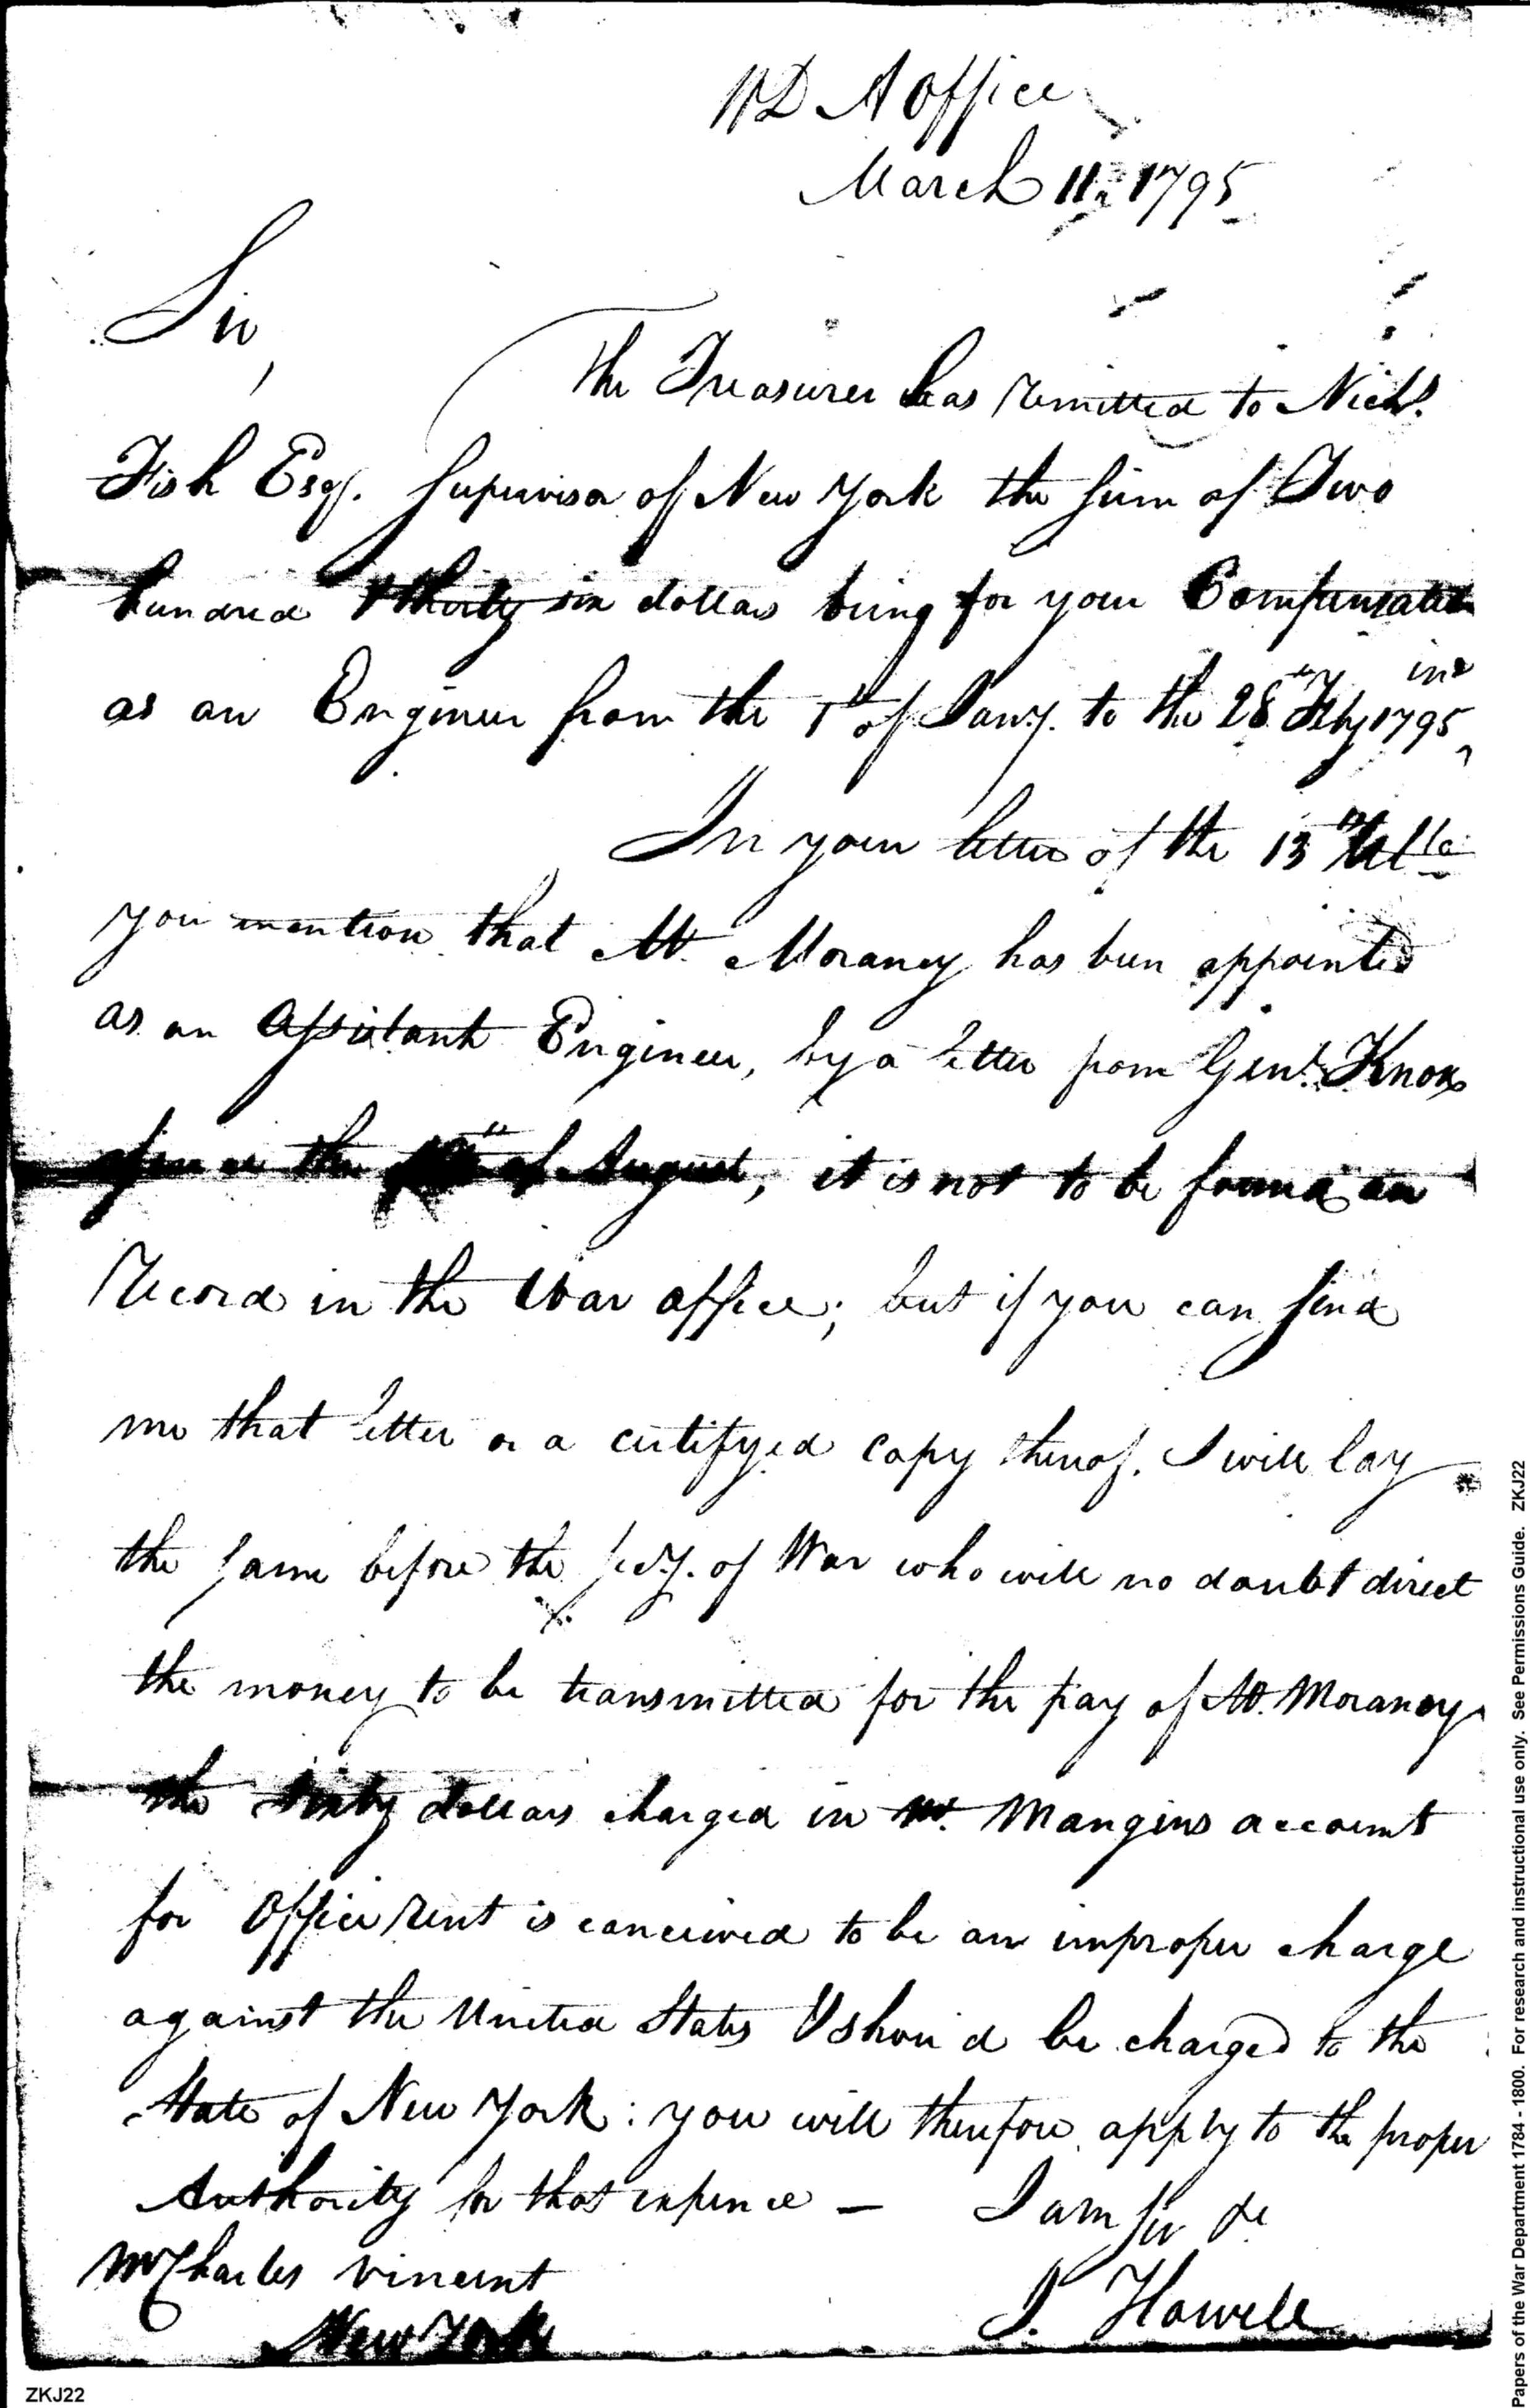 WD A Office
March 11th 1795
Sir,
The Treasurer has remitted to Nichs.
Fish Esqr. Supervisor of New York the sum of Two
hundred & thirty six dollars being for your Compensation
as an Engineer from the 1st of Jany. to the 28th Feby 1795 ine
In your letter of the 13th Ulto
you mention that Mr. Moraney has been appointed
as an Assistant Engineer, by a letter from Genl. Knox
the of August, it is not to be found on
Record in the War office; but if you can find
me that letter or a certifyed copy thereof. I will lay
the same before the Secy. of War who will no doubt direct
the money to be transmitted for the pay of Mr. Moraney
the Sixty dollars charged in Mr. Mangins account
for Office rent is conceived to be an improper charge
against the United States & should be charged to the
State of New York: you will therefore apply to the proper
Authority for that expence — I am Sir &c
Mr Charles Vincent
New York
J. Howell
ZKJ22
Papers of the War Department 1784 - 1800. For research and instructional use only. See Permissions Guide. ZKJ22